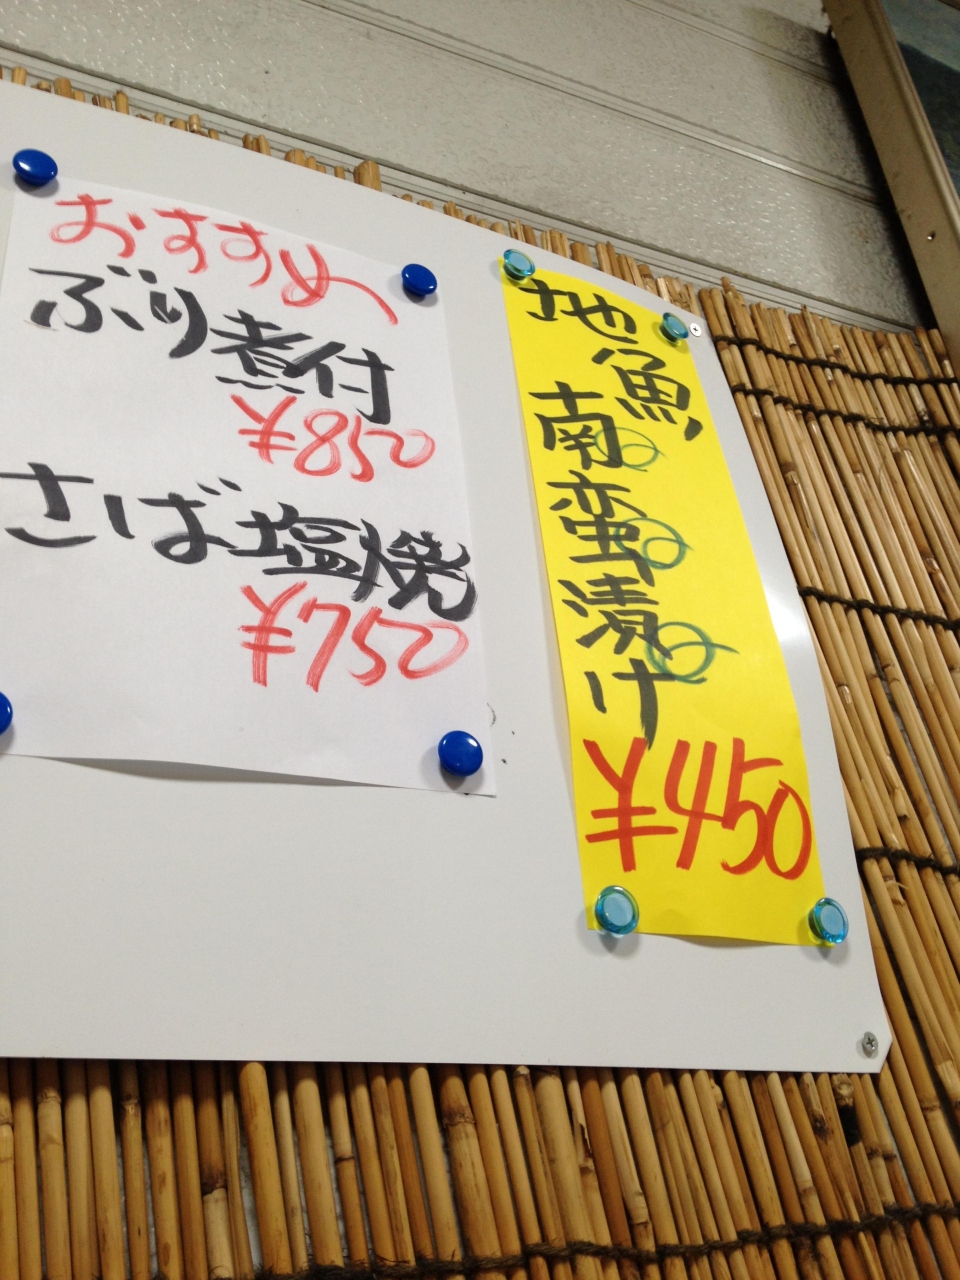 おすすめ
ぶり煮付
¥850
さば塩焼
¥750
地魚
南蛮漬け
¥450